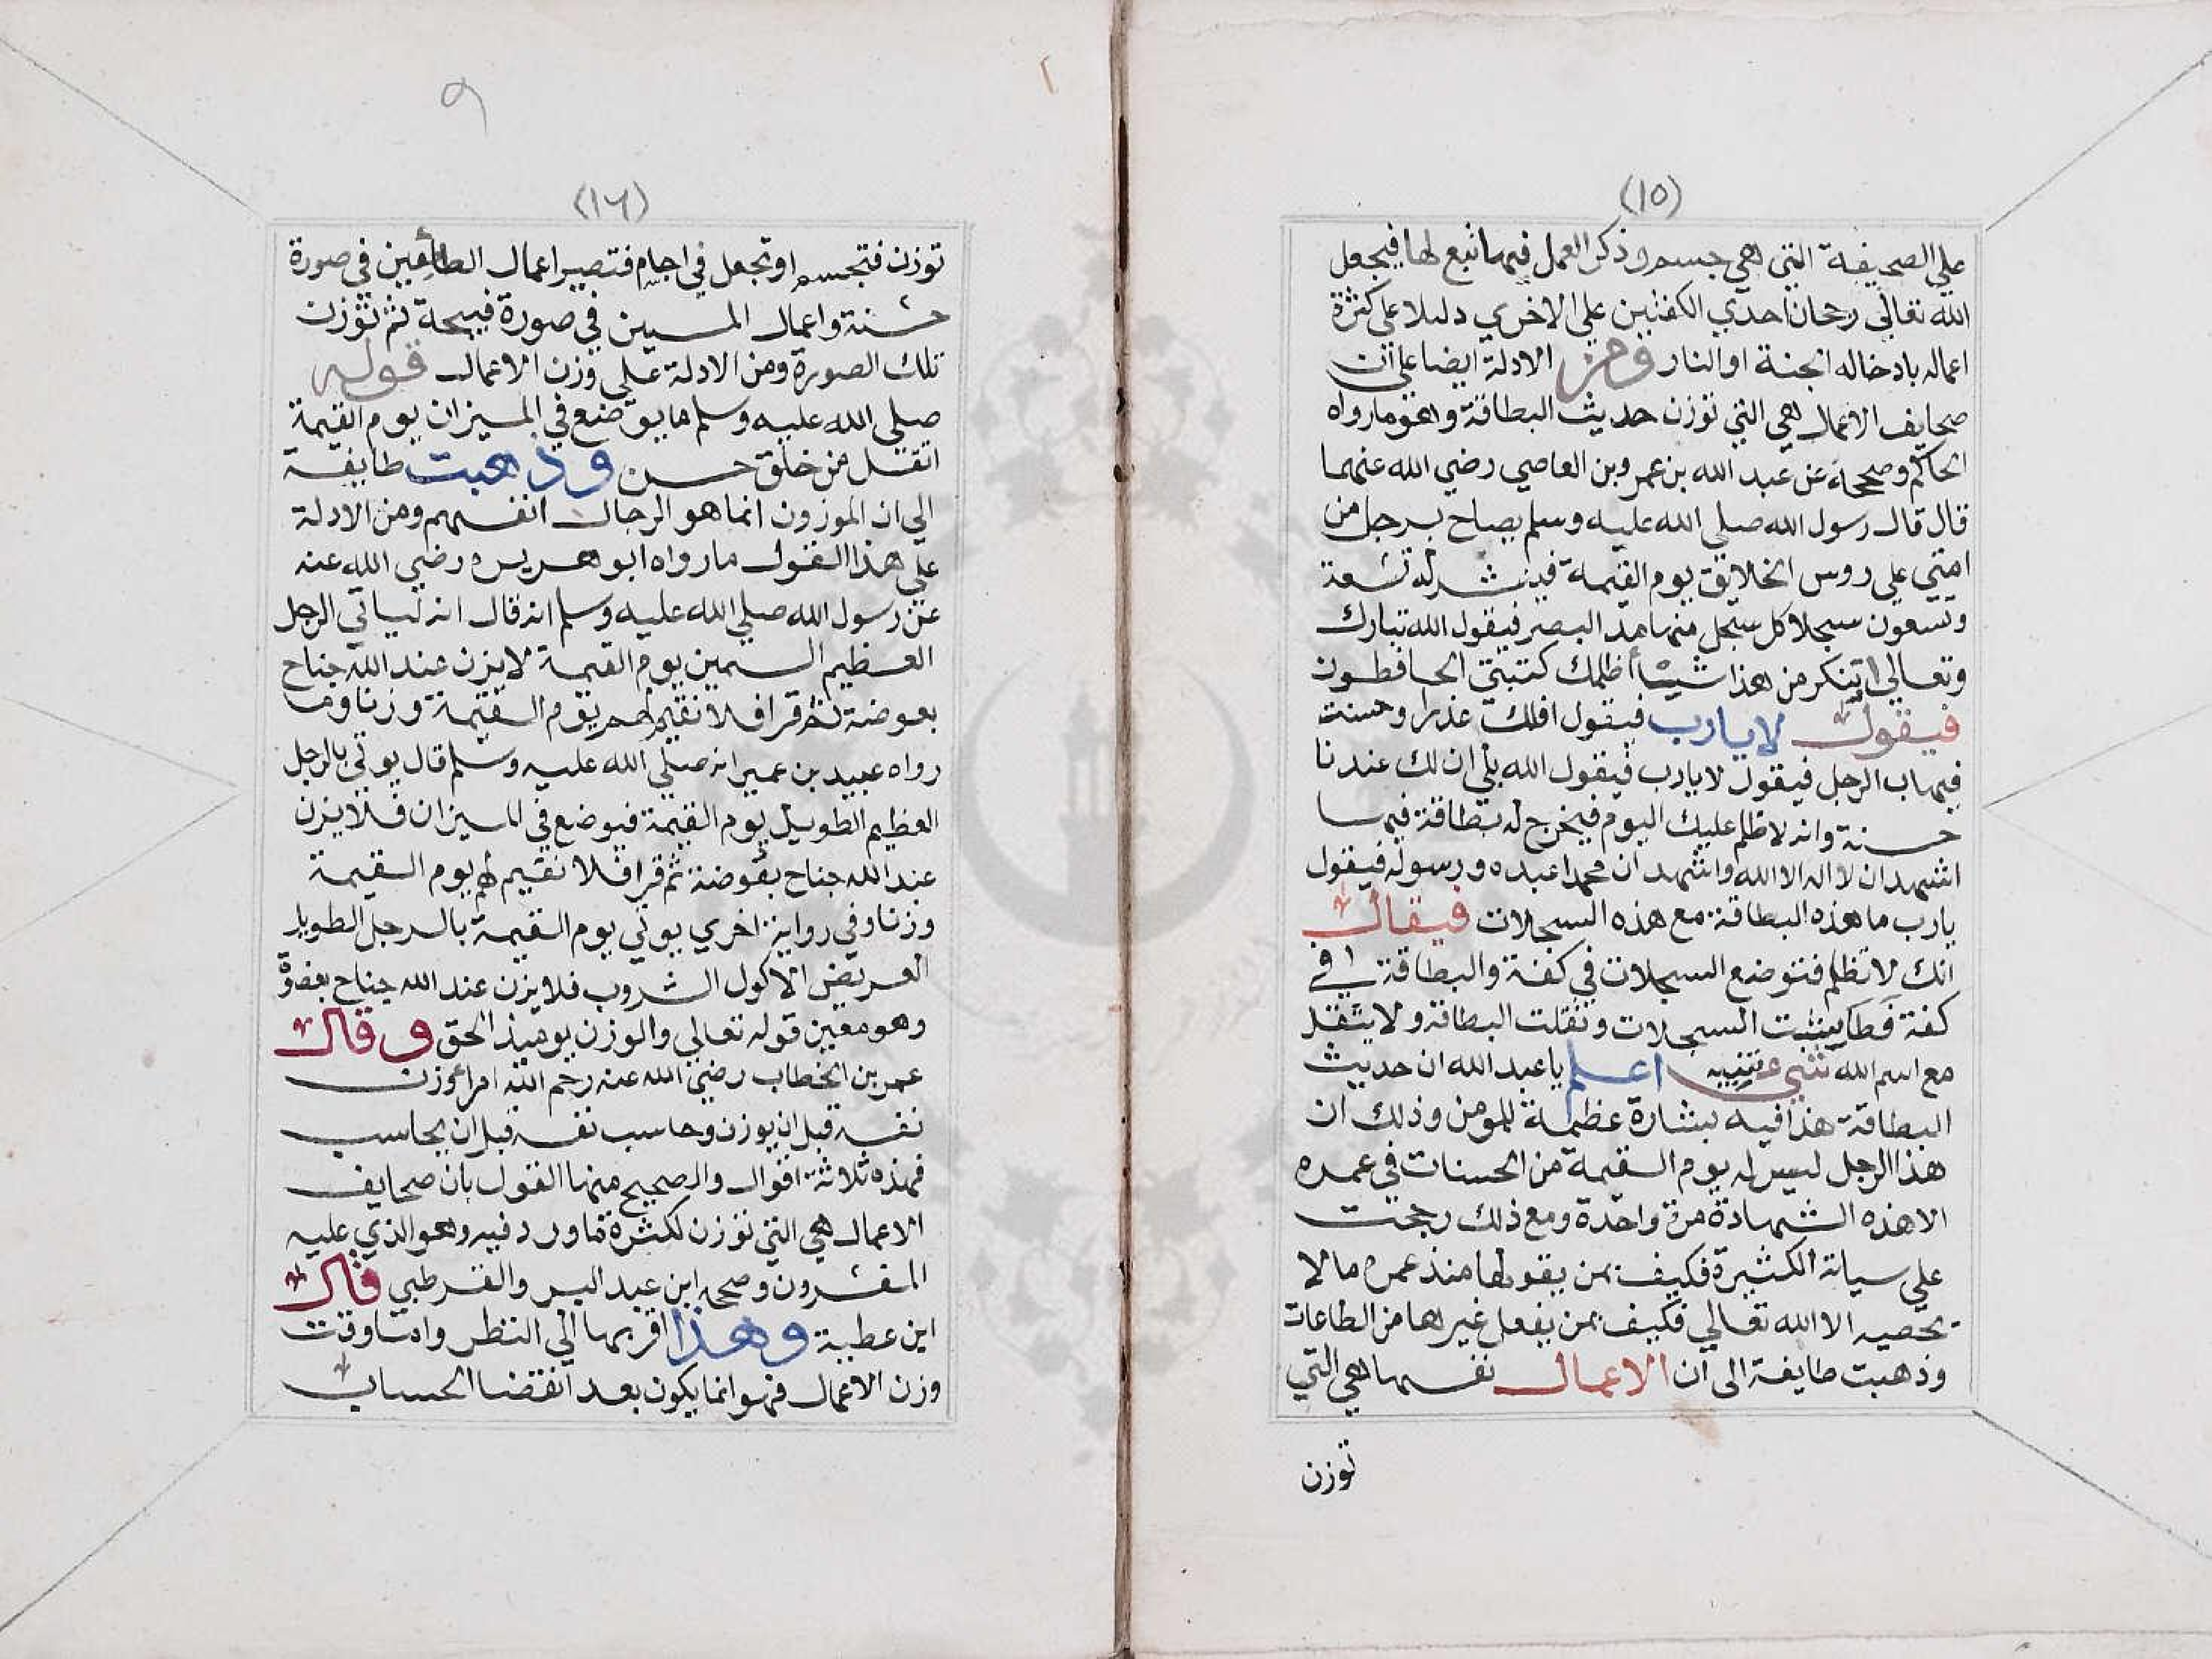 (١٥)
علي الصحيفة التي هي جسم وذكر العمل فيها تبع لها فيجعل
الله تعالي رجحان احدي الكفتين علي الاخري دليلا علي كثرة
اعماله بادخاله الجنة او النار ومن الادلة ايضا علي ان
صحايف الاعمال هي التي توزن حديث البطاقة وهو ما رواه
الحاكم وصححه عن عبد الله بن عمرو بن العاصي رضي الله عنهما
قال قال رسول الله صلي الله عليه وسلم يصاح برجل من
امتي علي روس الخلايق يوم القيمة فينشر له تسعة
وتسعون سجلا كل سجل منها مد البصر فيقول الله تبارك
وتعالي اتنكر من هذا شيئا أظلمك كتبتي الحافظون
فيقول لا يارب فيقول افلك عذرا وحسنت
فيهاب الرجل فيقول لا يارب فيقول الله بلي ان لك عندنا
حسنة وانه لا ظلم عليك اليوم فيخرج له بطاقة فيها
اشهد ان لا اله الا الله واشهد ان محمدا عبده ورسوله فيقول
يارب ما هذه البطاقة مع هذه السجلات فيقال
انك لا تظلم فتوضع السجلات في كفة والبطاقة في
كفة فطاشت السجلات وثقلت البطاقة ولا يثقل
مع اسم الله شي تنبيه اعلم يا عبد الله ان حديث
البطاقة هذا فيه بشارة عظيمة للمومن وذلك ان
هذا الرجل ليس له يوم القيمة من الحسنات في عمره
الا هذه الشهادة مرة واحدة ومع ذلك رجحت
علي سياته الكثيرة فكيف بمن يقولها منذ عمره ما لا
يحصيه الا الله تعالي فكيف بمن يفعل غيرها من الطاعات
وذهبت طايفة الى ان الاعمال نفسها هي التي
توزن
٩
(١٦)
توزن فتجسم او تجعل في اجسام فتصير اعمال الطائعين في صورة
حسنة واعمال المسيين في صورة قبيحة ثم توزن
تلك الصورة ومن الادلة علي وزن الاعمال قوله
صلي الله عليه وسلم ما يوضع في الميزان يوم القيمة
اثقل من خلق حسن وذهبت طايفة
الي ان الموزون انما هو الرجال انفسهم ومن الادلة
علي هذا القول ما رواه ابو هريره رضي الله عنه
عن رسول الله صلي الله عليه وسلم انه قال انه لياتي الرجل
العظيم السمين يوم القيمة لا يزن عند الله جناح
بعوضة ثم قرا فلا نقيم لهم يوم القيمة وزنا وما
رواه عبيد بن عمير انه صلي الله عليه وسلم قال يوتي بالرجل
العظيم الطويل يوم القيمة فيوضع في الميزان فلا يزن
عند الله جناح بعوضة ثم قرا فلا نقيم لهم يوم القيمة
وزنا وفي رواية اخري يوتي يوم القيمة بالرجل الطويل
العريض الاكول الشروب فلا يزن عند الله جناح بعضوة
وهو معين قوله تعالي والوزن يوميذ الحق وقال
عمر بن الخطاب رضي الله عنه رحم الله امرا وزن
نفسه قبل ان يوزن وحاسب نفسه قبل ان يحاسب
فهذه ثلاثة اقوال والصحيح منها القول بان صحايف
الاعمال هي التي توزن لكثرة ما ورد فيه وهو الذي عليه
المفسرون وصححه ابن عبد البر والقرطبي قال
ابن عطية وهذا اقربها الي النظر واما وقت
وزن الاعمال فهو انما يكون بعد انقضا الحساب